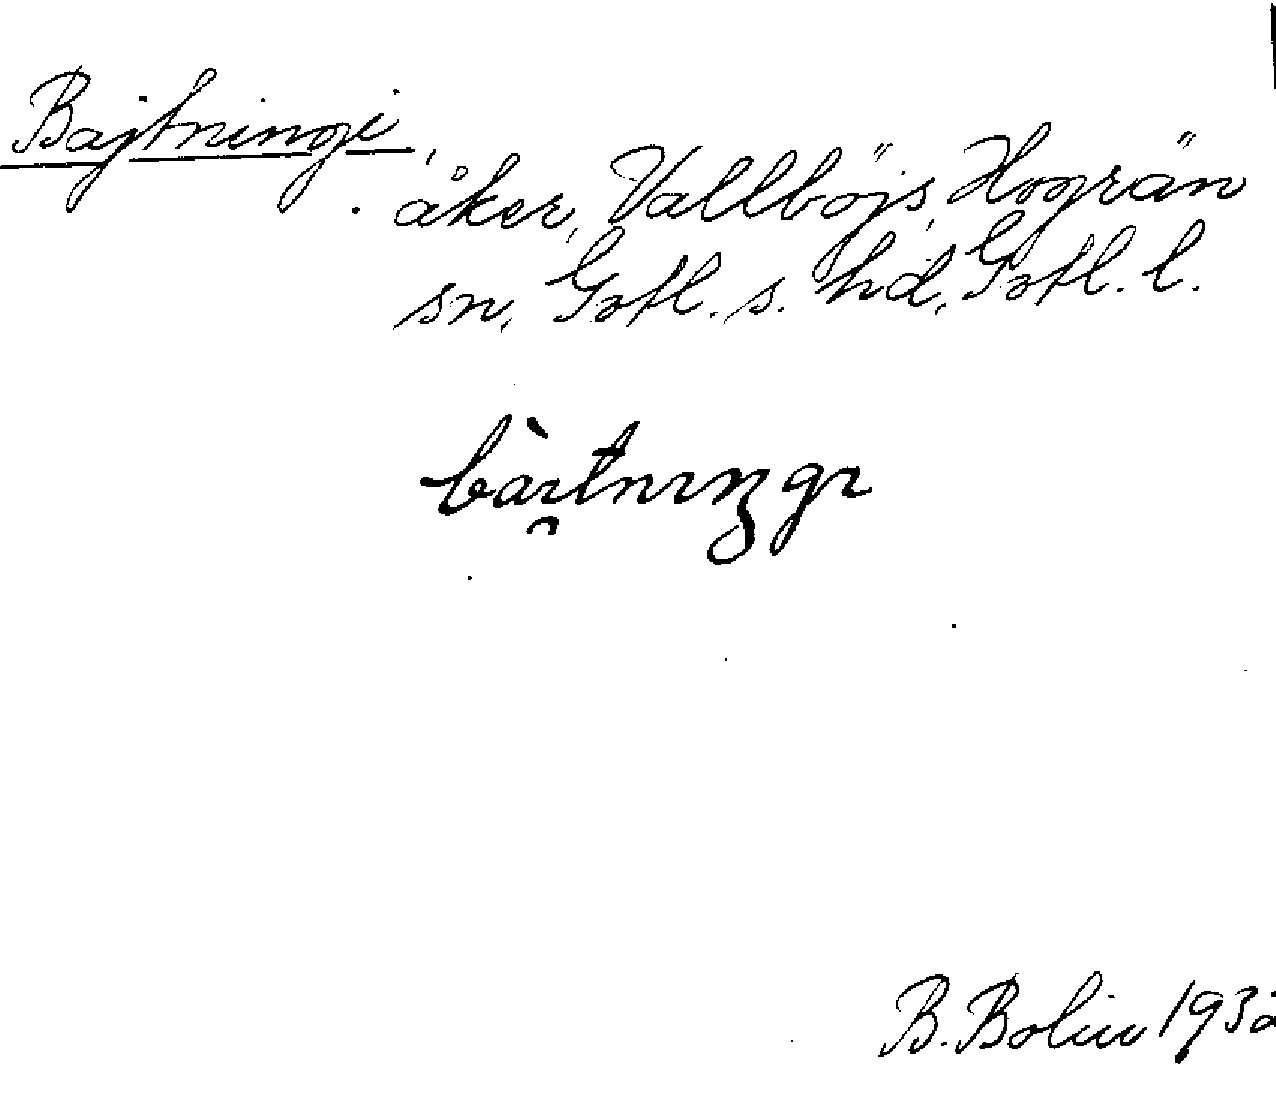 Bajtningi,
åker, Vallböjs, Hogrän
sn, Gotl. s. hd, Gotl. l.
bàı̯tnıŋgı
B. Bolin 1932